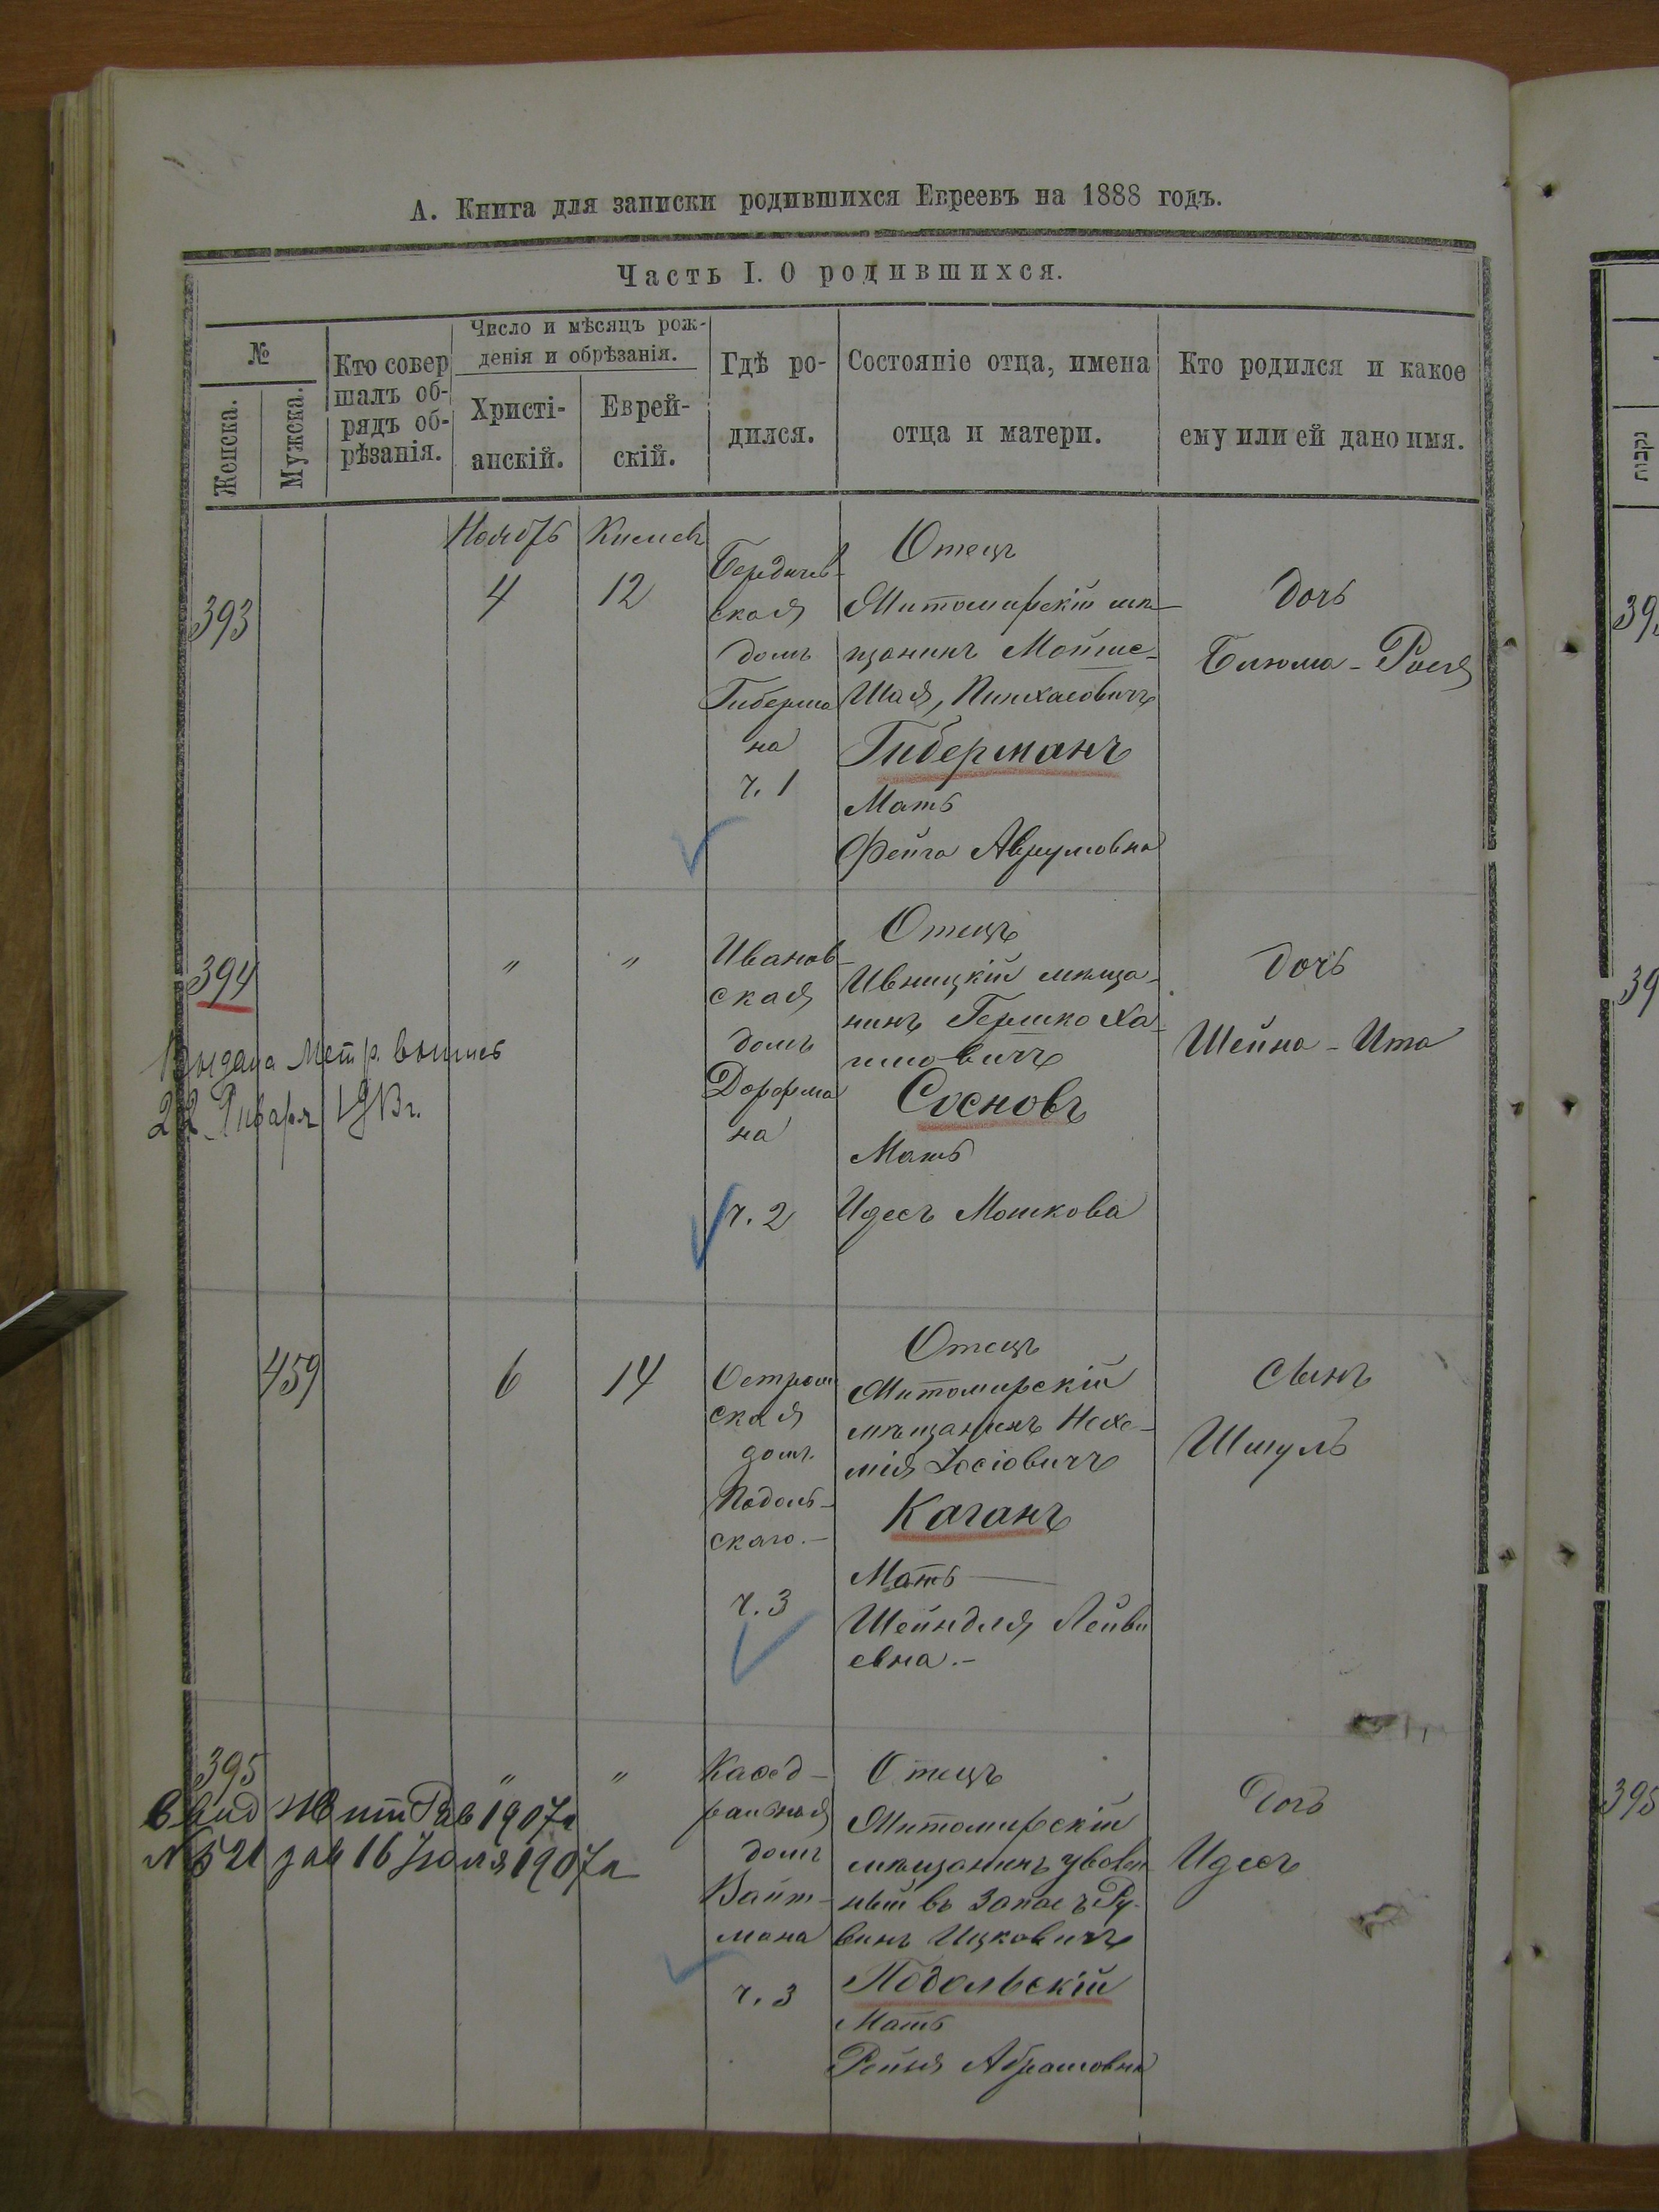 А. Книга для записки родившихся Евреевъ на 1888 годъ.
Часть I. О родившихся.
№
Женска.
Мужска.
Кто совер
шалъ об-
рядъ об-
рѣзанія.
Число и мѣсяцъ рож-
денія и обрѣзанія.
Христі-
анскій.
Еврей-
скій.
Гдѣ ро-
дился.
Состояніе отца, имена
отца и матери.
Кто родился и какое
ему или ей дано имя.
393
Ноябрь
4
Кислевъ
12
Бердичев-
ская
домъ
Гиберма
на
ч. 1
Отецъ
Житомирскій мѣ-
щанинъ Мойше-
Шая, Пинхасовичъ
Гиберманъ
Мать
Фейга Аврумовна
дочь
Блюма-Рося
394
Выдана Метр. выпись
22 Января 1913 г.
"
"
Иванов-
ская
домъ
Дорфма
на
ч. 2
Отецъ
Ивницкій мѣща-
нинъ Гершко Ха-
имовичъ
Сосновъ
Мать
Идесъ Мошкова
дочь
Шейна-Ита
459
6
14
ская
домъ
Подоль-
скаго.-
ч. 3
Отецъ
Житомирскій
мѣщанинъ Нехе-
мія Іосіовичъ
Каганъ
Мать
Шейндля Лейви
евна.-
сынъ
Шмуль
395
"
"
1907г
№ 521 16 Іюля 1907г
Каѳед-
ральная
домъ
Вайт-
мана
ч. 3
Отецъ
Житомирскій
мѣщанинъ уволен-
ный въ запасъ Ру-
винъ Ицковичъ
Подольскій
Мать
Рейзя Абрамовна
дочь
Идесъ
נקבות
395